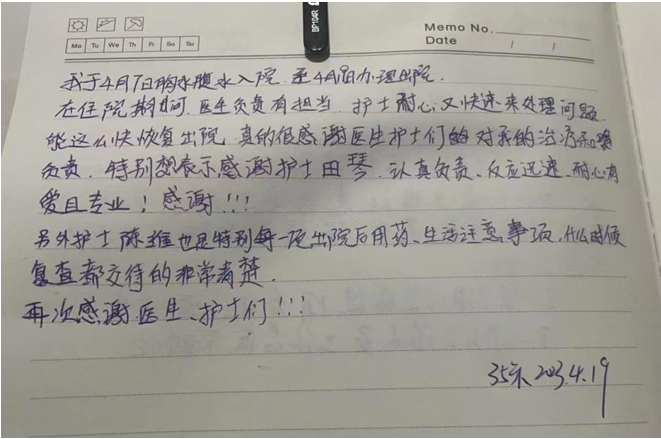 BP104R
Memo No.
Mo Tu We Th Fr Sa Su
Date / /
我于4月7日胸水腹水入院,至4月19日办理出院.
在住院期间,医生负责有担当,护士耐心又快速来处理问题
能这么快恢复出院,真的很感谢医生护士们的对我的治疗和
负责.特别想表示感谢护士田琴.认真负责、反应迅速、耐心有
爱且专业!感谢!!!
另外护士陈维也是特别每一项出院后用药、生活注意事项,什么时候
复查都交待的非常清楚.
再次感谢医生、护士们!!!
35床 2023.4.19